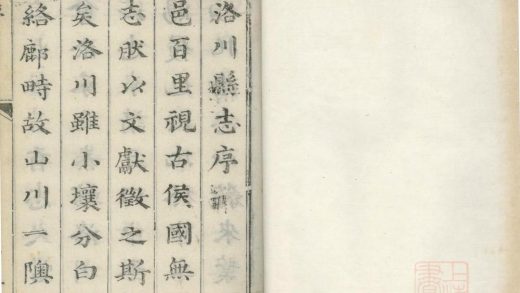 洛川縣志序
邑百里視古侯國無
志肰以文獻徵之斯
矣洛川雖小壤分白
絡鄜畤故山川一隩